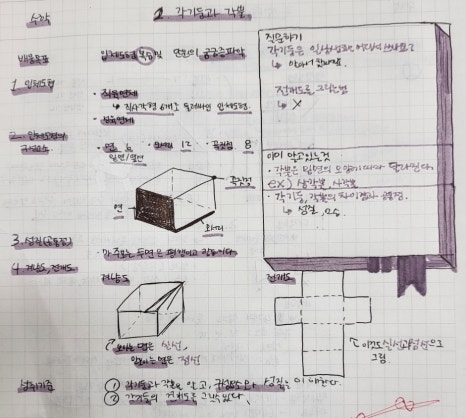 수학
2 각기둥과 각뿔
배움목표
입체도형 복습 및 단원의 궁금증 파악
1. 입체도형
· 직육면체
↳ 직사각형 6개로 둘러싸인 입체도형.
· 정육면체
2. 입체도형의
구성요소
· 면 6 · 모서리 12 · 꼭짓점 8
밑면/옆면
꼭짓점
면
모서리
3 성질(공통점)
· 마주보는 두 면은 평행하고 합동이다.
4. 겨냥도, 전개도
겨냥도
보이는 면은 실선,
안보이는 면은 점선
전개도
이것도 실선과 점선으로
그림
성취기준
① 각기둥과 각뿔을 알고, 구성요소와 성질을 이해한다.
② 각기둥의 전개도를 그릴 수 있다.
질문하기
각기둥은 일상생활에 어디에서 쓰나요?
↳
전개도를 그리는 법
↳ X
이미 알고있는 것
· 각뿔은 밑면의 모양에 따라 달라진다.
ex) 삼각뿔, 사각뿔
· 각기둥, 각뿔의 차이점과 공통점.
↳ 성질, 요소